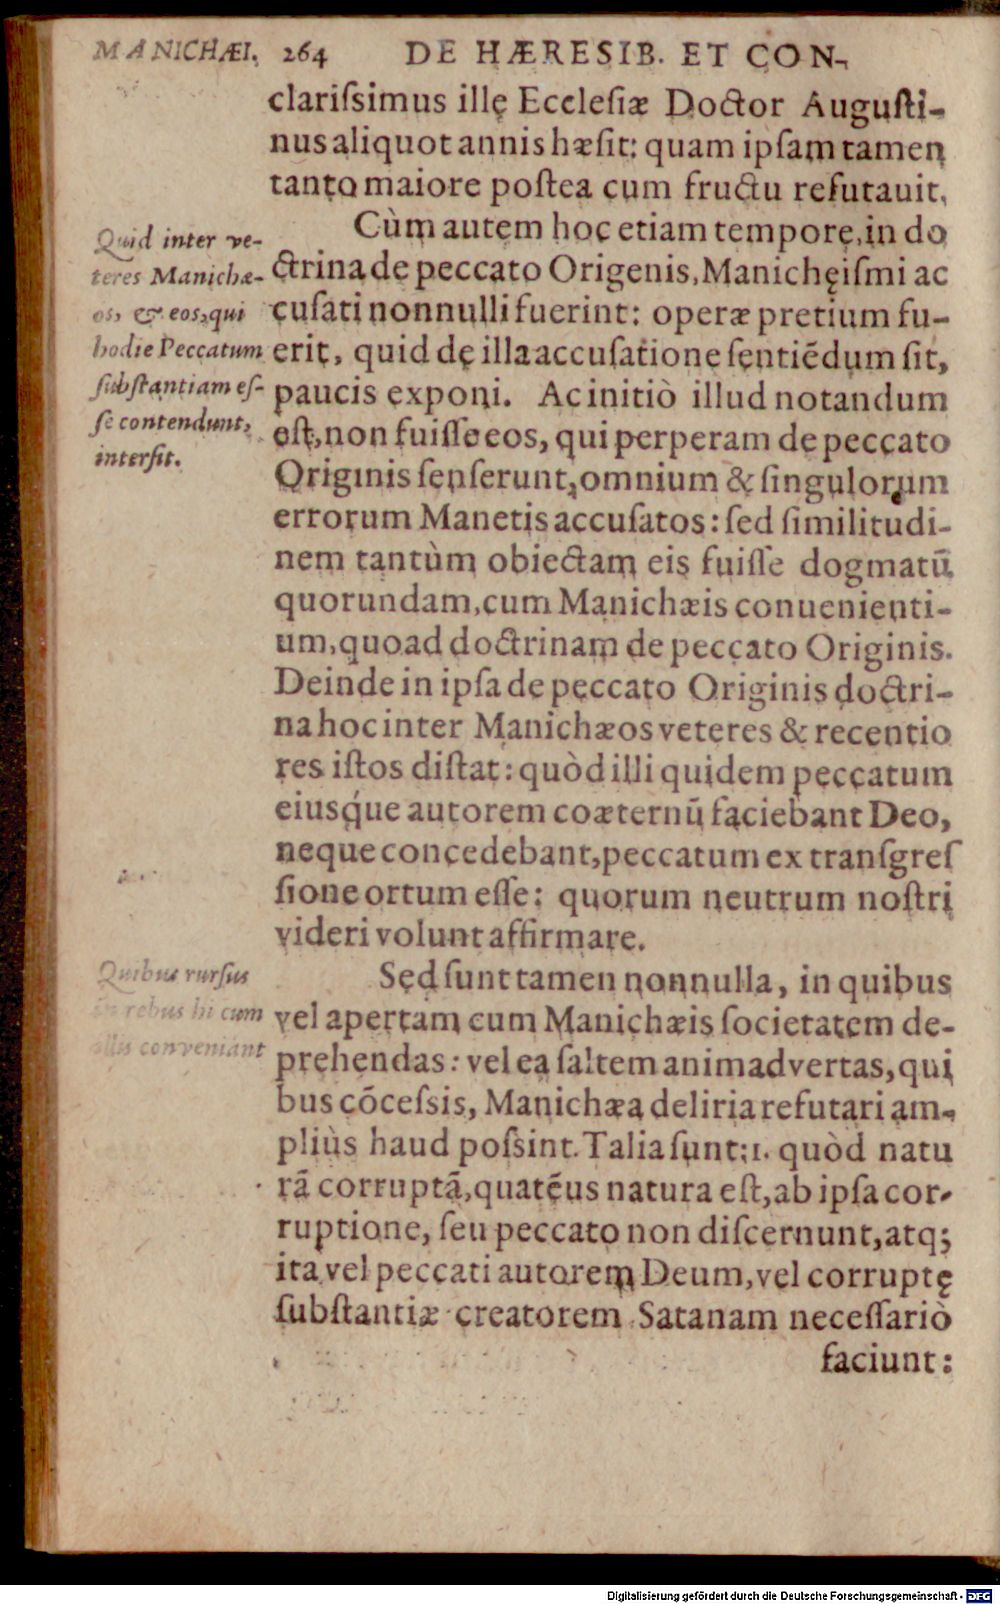 MANICHÆI. 264 DE HÆRESIB. ET CON-
clariſsimus ille Eccleſiæ Doctor Auguſti-
nus aliquot annis hæſit: quam ipſam tamen
tanto maiore poſtea cum fructu refutauit.
Cùm autem hoc etiam tempore, in do
ctrina de peccato Origenis, Manichęiſmi ac
cuſati nonnulli fuerint: operæ pretium fu-
erit, quid de illa accuſatione ſentiēdum ſit,
paucis exponi. Ac initiò illud notandum
eſt, non fuiſſe eos, qui perperam de peccato
Originis ſenſerunt, omnium & ſingulorum
errorum Manetis accuſatos: ſed ſimilitudi-
nem tantùm obiectam eis fuiſſe dogmatū
quorundam, cum Manichæis conuenienti-
um, quoad doctrinam de peccato Originis.
Deinde in ipſa de peccato Originis doctri-
na hoc inter Manichæos veteres & recentio
res iſtos diſtat: quòd illi quidem peccatum
eiusq́ue autorem coæternū faciebant Deo,
neque concedebant, peccatum ex tranſgreſ
ſione ortum eſſe: quorum neutrum noſtri
videri volunt affirmare.
Sed ſunt tamen nonnulla, in quibus
vel apertam cum Manichæis ſocietatem de-
prehendas: vel ea ſaltem animadvertas, qui
bus cōceſsis, Manichæa deliria refutari am-
pliùs haud poſsint. Talia ſunt: 1. quòd natu
rā corruptā, quatēus natura eſt, ab ipſa cor-
ruptione, ſeu peccato non diſcernunt, atq;
ita vel peccati autorem Deum, vel corruptę
ſubſtantiæ creatorem Satanam neceſſariò
faciunt:
Quid inter ve-
teres Manichæ-
os, & eos, qui
hodie Peccatum
ſubſtantiam eſ-
ſe contendunt,
interſit.
Quibus rurſus
in rebus hi cum
illis conveniant
Digitalisierung gefördert durch die Deutsche Forschungsgemeinschaft - DFG